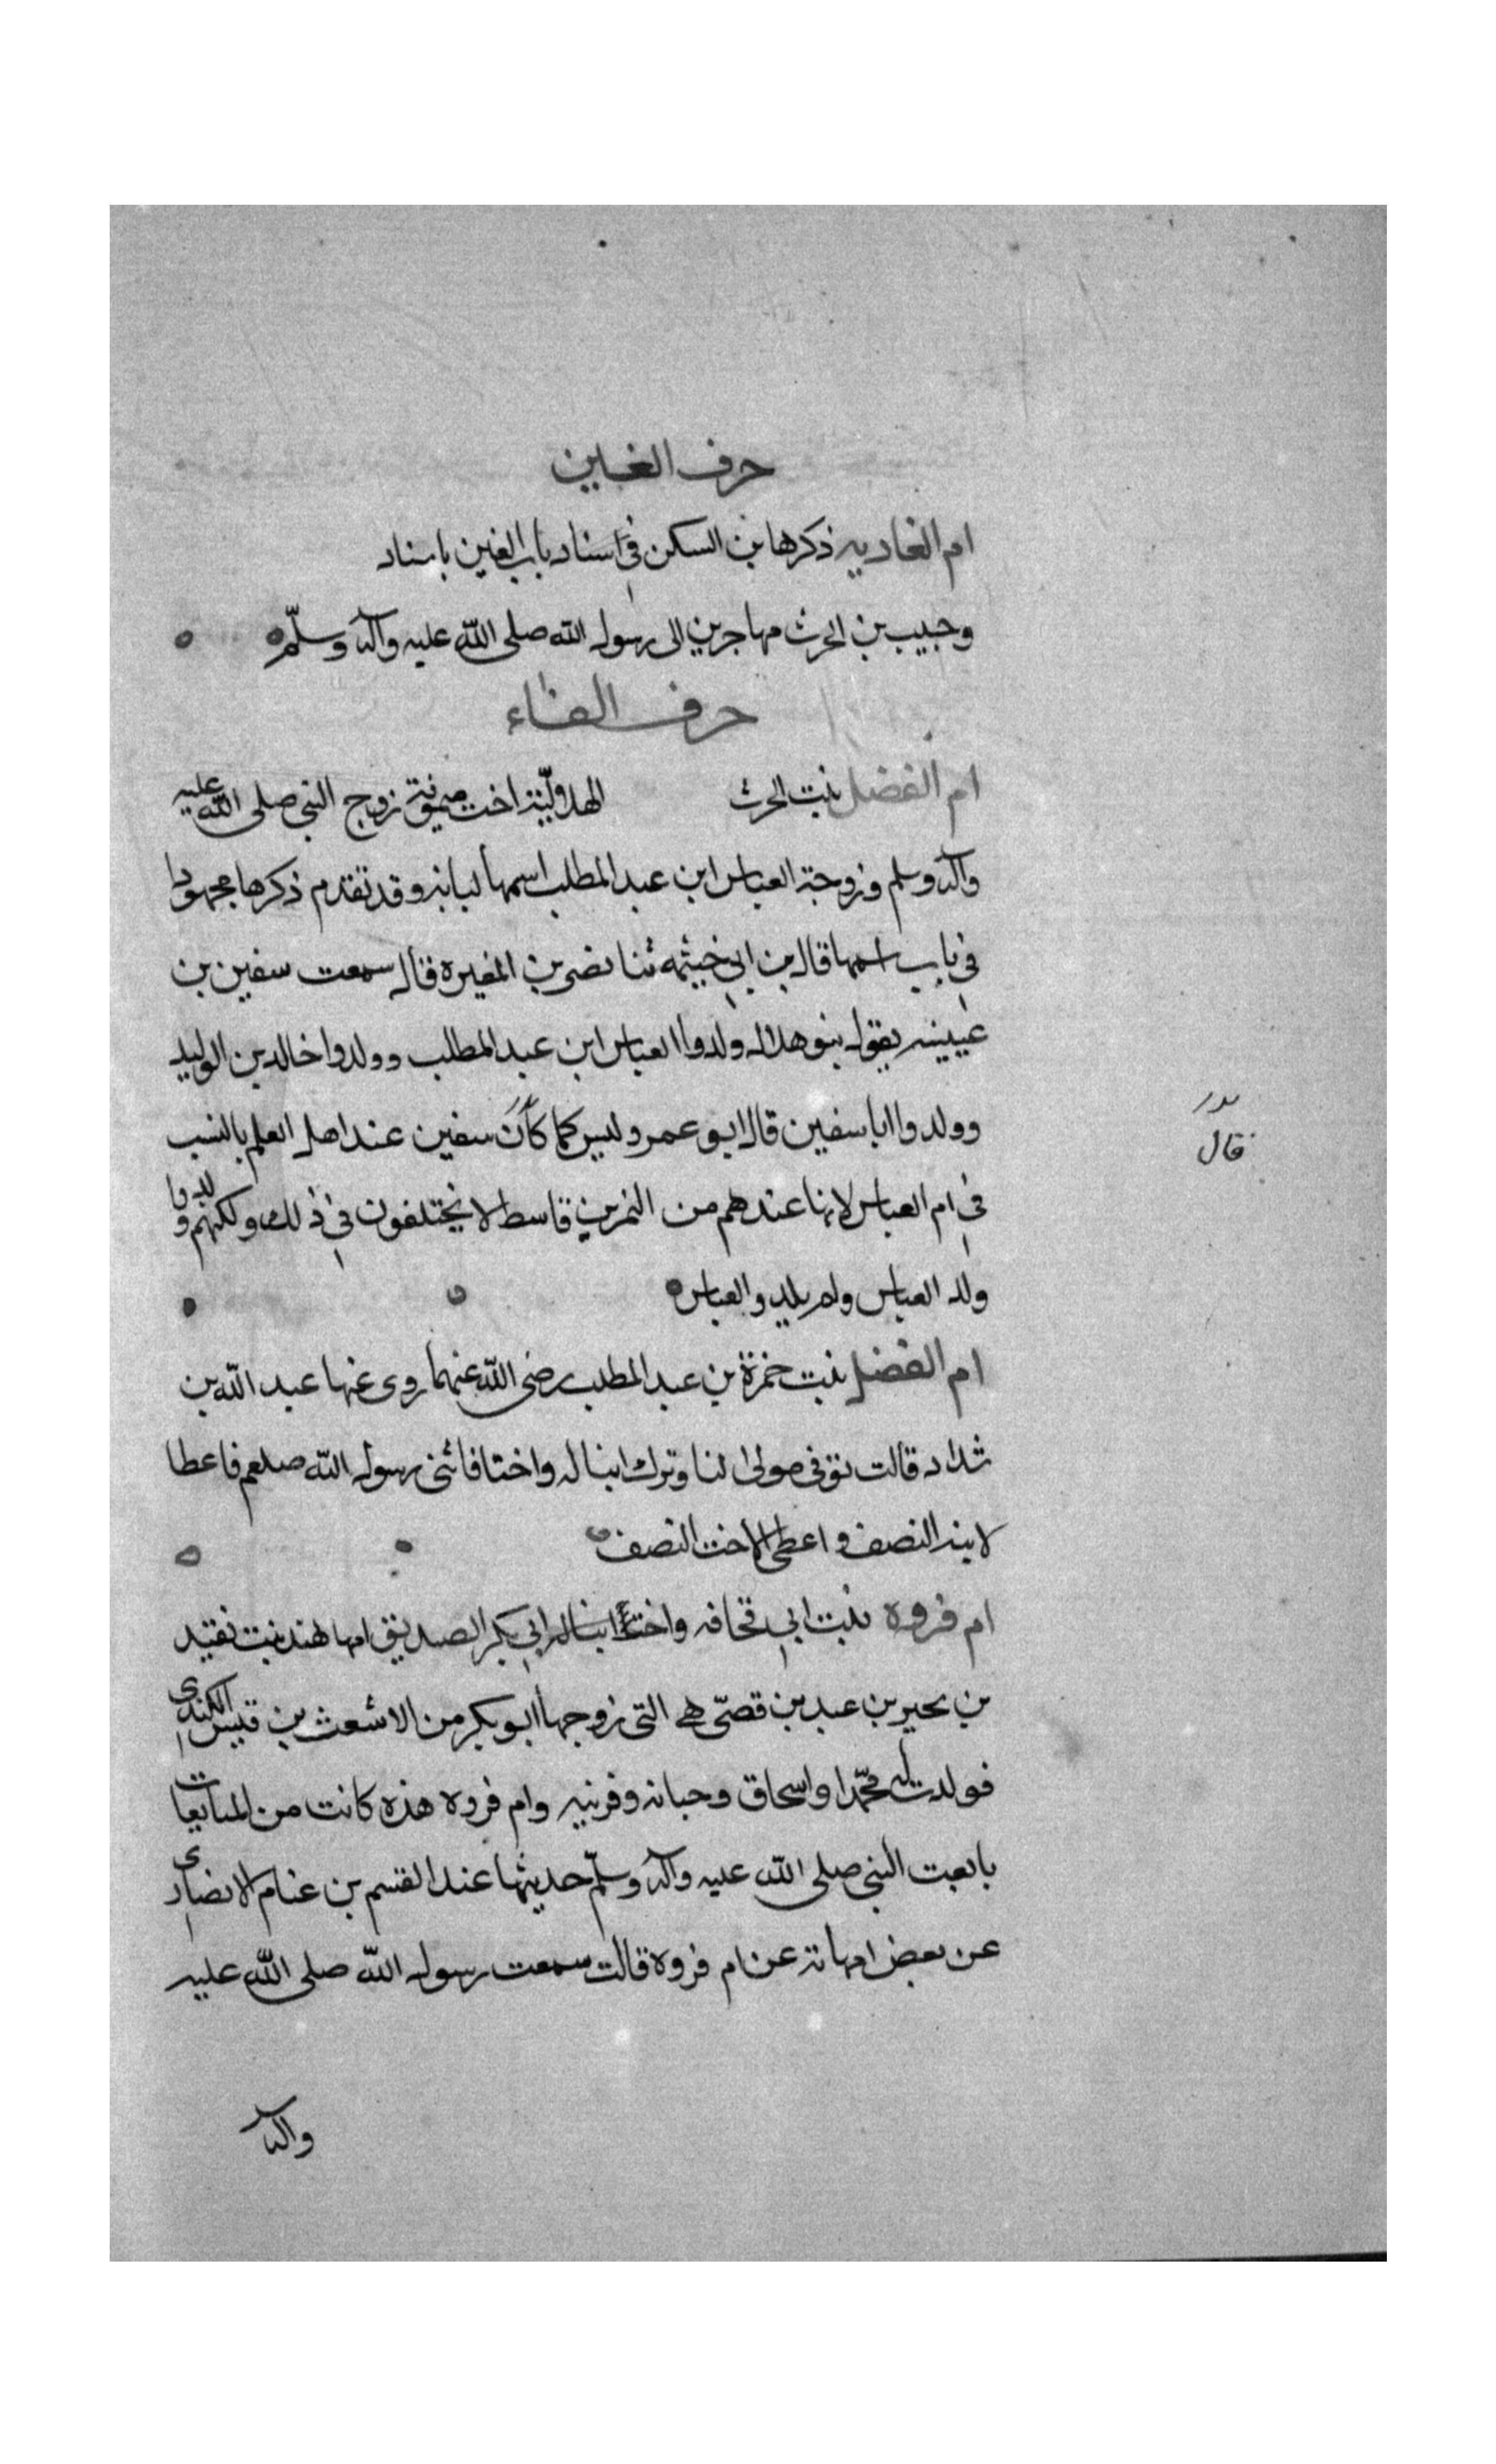 حرف الغين
ام الغاديه ذكرها بن السكن في اسناد باب الغين باسناد
وحبيب بن الحرث مهاجرين الى رسول الله صلى الله عليه وآله وسلّم
حرف الفاء
ام الفضل بنت الحرث الهلاليّة اخت ميمونة زوج النبي صلى الله عليه
وآله وسلم وزوجة العباس ابن عبد المطلب اسمها لبابه وقد تقدم ذكرها مجهودا
في باب اسمها قال بن ابي خيثمه ثنا نصر بن المغيره قال سمعت سفين بن
عيينه يقول بنو هلال ولدوا العباس ابن عبد المطلب وولدوا خالد بن الوليد
وولدوا ابا سفين قال ابو عمر وليس كما كان سفين عند اهل العلم بالنسب
قال
في ام العباس لانها عندهم من النمر بن قاسط لا يختلفون في ذلك ولكنهم ولدوا
ولد العباس ولم يلدو العباس
ام الفضل بنت حمزة بن عبد المطلب رضى الله عنهما روى عنها عبد الله بن
شداد قالت توفى مولى لنا وترك ابنا له واختا فاتى رسول الله صلعم فاعطا
لابنه النصف واعطى الاخت النصف
ام فروه بنت ابي قحافه واختا ابنا له ابي بكر الصديق امها هند بنت نقيد
بن بحير بن عبد بن قصىّ هي التى زوجها ابو بكر من الاشعث بن قيس الكندى
فولدت له محمّدا واسحاق وحبانه وقرنيه وام فروه هذه كانت من المبايعات
بايعت النبي صلى الله عليه وآله وسلّم حديثها عند القسم بن غنام الانصارى
عن بعض امهاته عن ام فروه قالت سمعت رسول الله صلى الله عليه
وآله